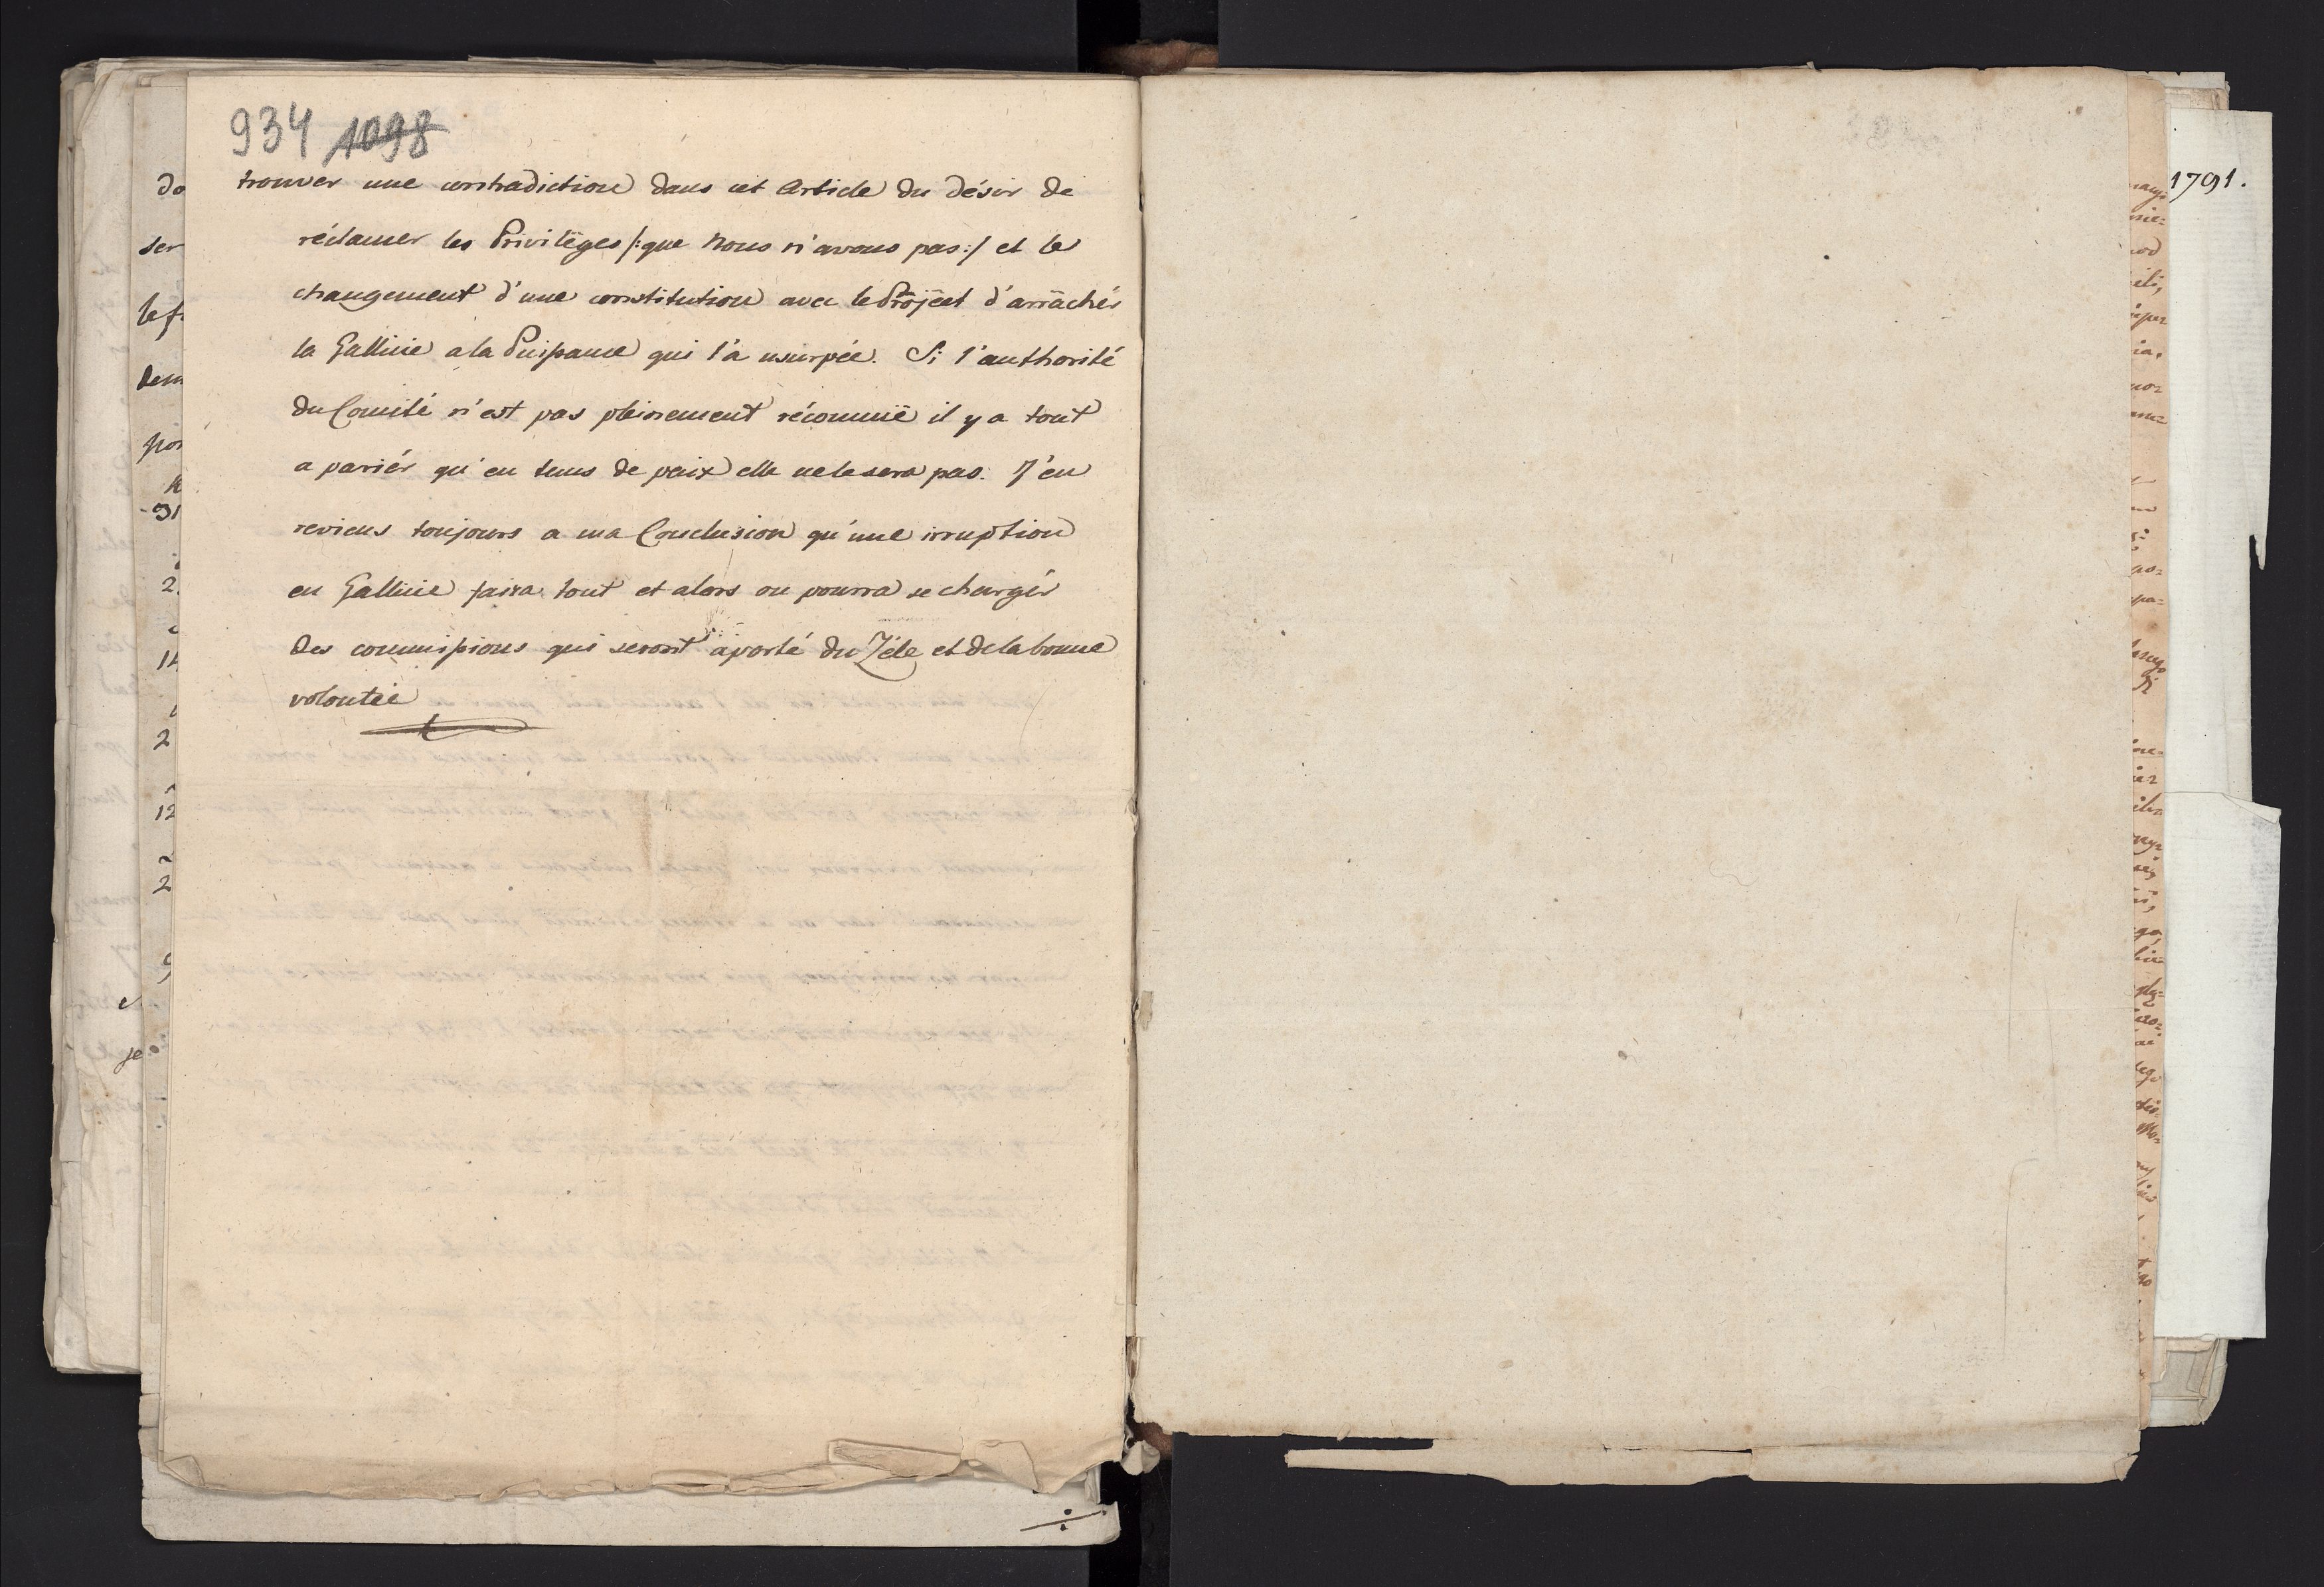 934 1098
trouver une contradiction dans cet Article du désir de
réclamer les Privilèges /:que Nous n'avons pas:/ et le
changement d'une constitution avec le Projéct d'arrâchér
la Gallicie a la Puissance qui l'a usurpée. Si l'authorité
du Comité n'est pas pleinement réconnuë il y a tout
a pariér qu'en tems de paix elle ne le sera pas. J'en
reviens toujours a ma Conclusion qu'une irruption
en Gallicie faira tout et alors on pourra se chargér
des commissions qui seront aporté du Zéle et de la bonne
volontée
1791.